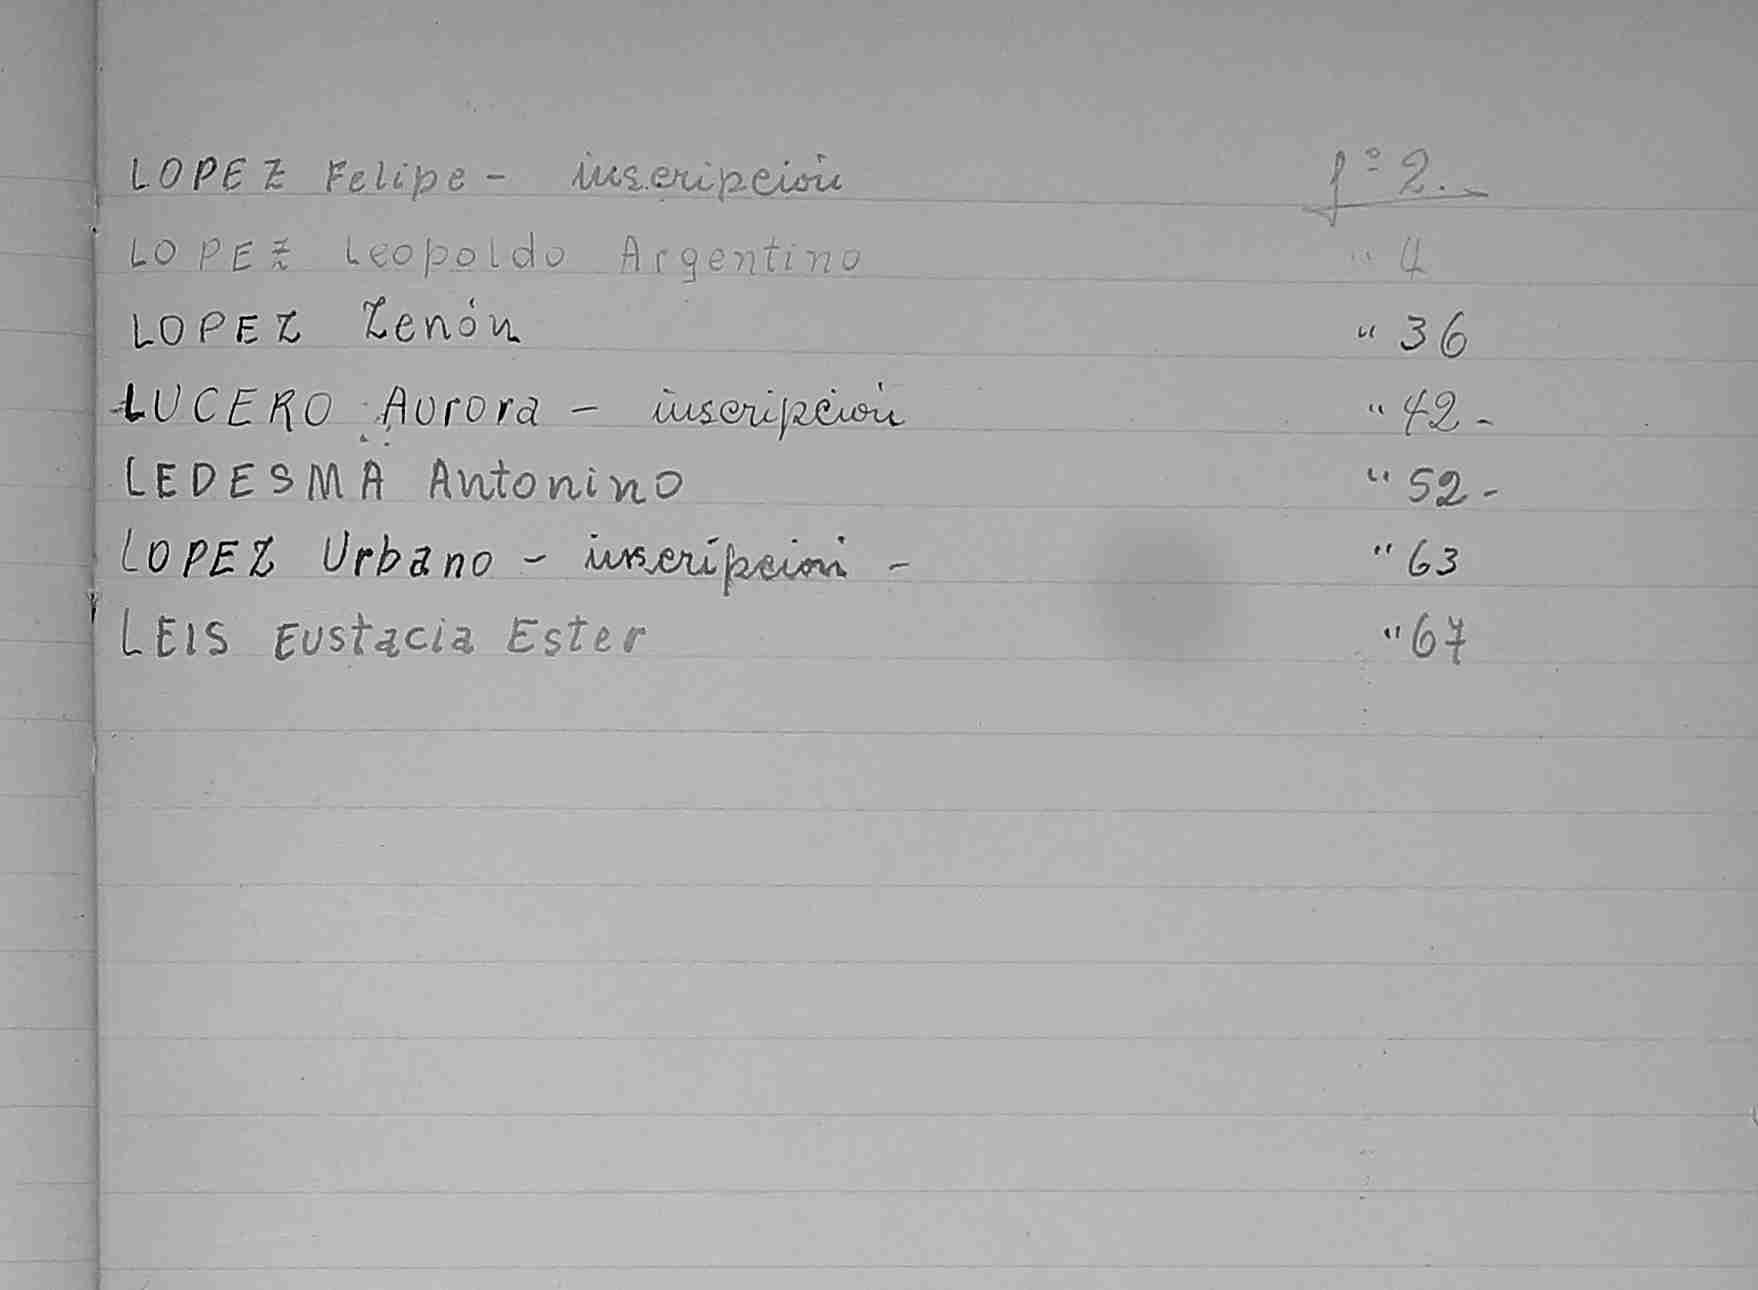 LOPEZ Felipe - inscripción fº 2.-
LOPEZ Leopoldo Argentino " 4
LOPEZ Zenón " 36
LUCERO Aurora - inscripción " 42-
LEDESMA Antonino " 52-
LOPEZ Urbano - inscripción - " 63
LEIS Eustacia Ester " 67